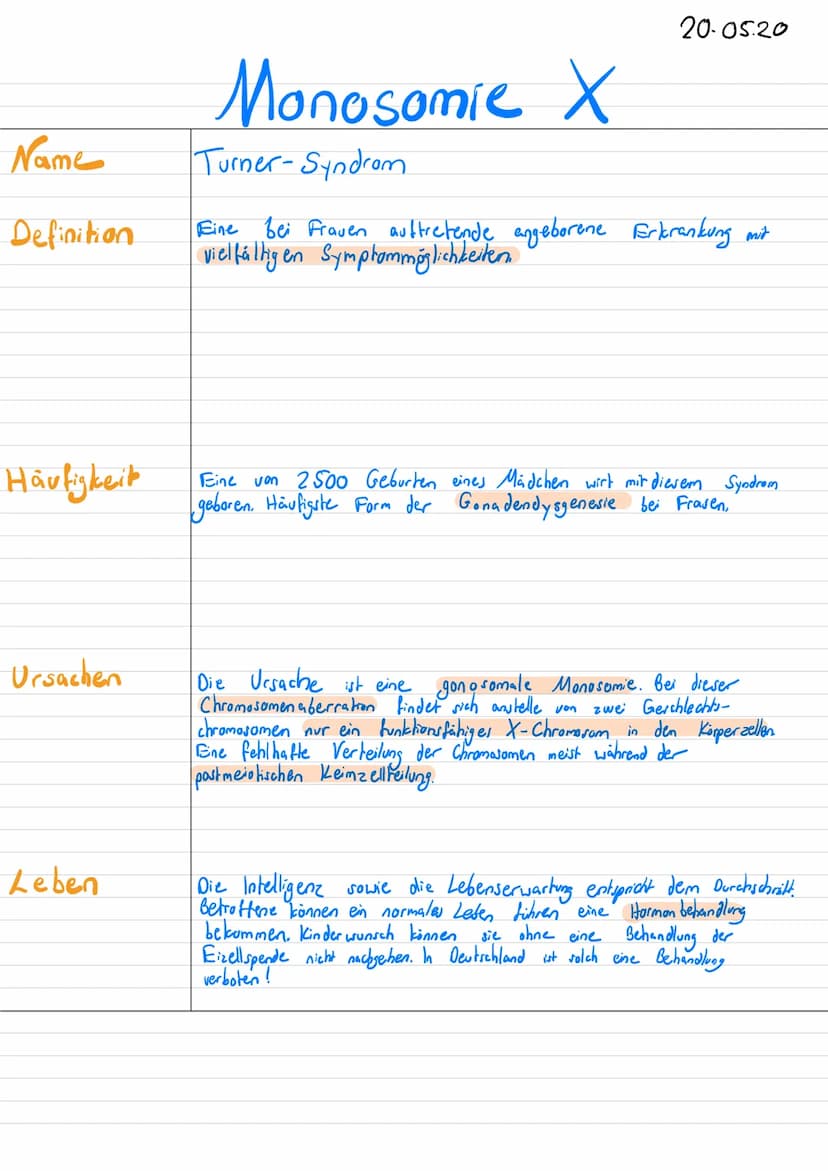 20.05.20
Monosomie X
Name
Turner-Syndrom
Definition
Eine bei Frauen auftretende angeborene Erkrankung mit
vielfältigen Symptommöglichkeiten.
Häufigkeit
Eine von 2500 Geburten eines Mädchen wirt mit diesem Syndrom
geboren. Häufigste Form der Gonadendysgenesie bei Frauen.
Ursachen
Die Ursache ist eine gonosomale Monosomie. Bei dieser
Chromosomenaberration findet sich anstelle von zwei Geschlechts-
chromosomen nur ein funktionsfähiges X-Chromosom in den Körperzellen
Eine fehlhafte Verteilung der Chromosomen meist während der
postmeiotischen Keimzellteilung.
Leben
Die Intelligenz sowie die Lebenserwartung entspricht dem Durchschnitt.
Betroffene können ein normales Leben führen eine Hormonbehandlung
bekommen. Kinderwunsch können sie ohne eine Behandlung der
Eizellspende nicht nachgehen. In Deutschland ist solch eine Behandlung
verboten!